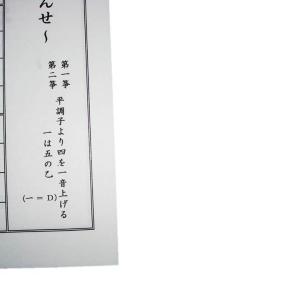 んせ～
第一箏 平調子より四を一音上げる
第二箏 一は五の乙
(一 = D)